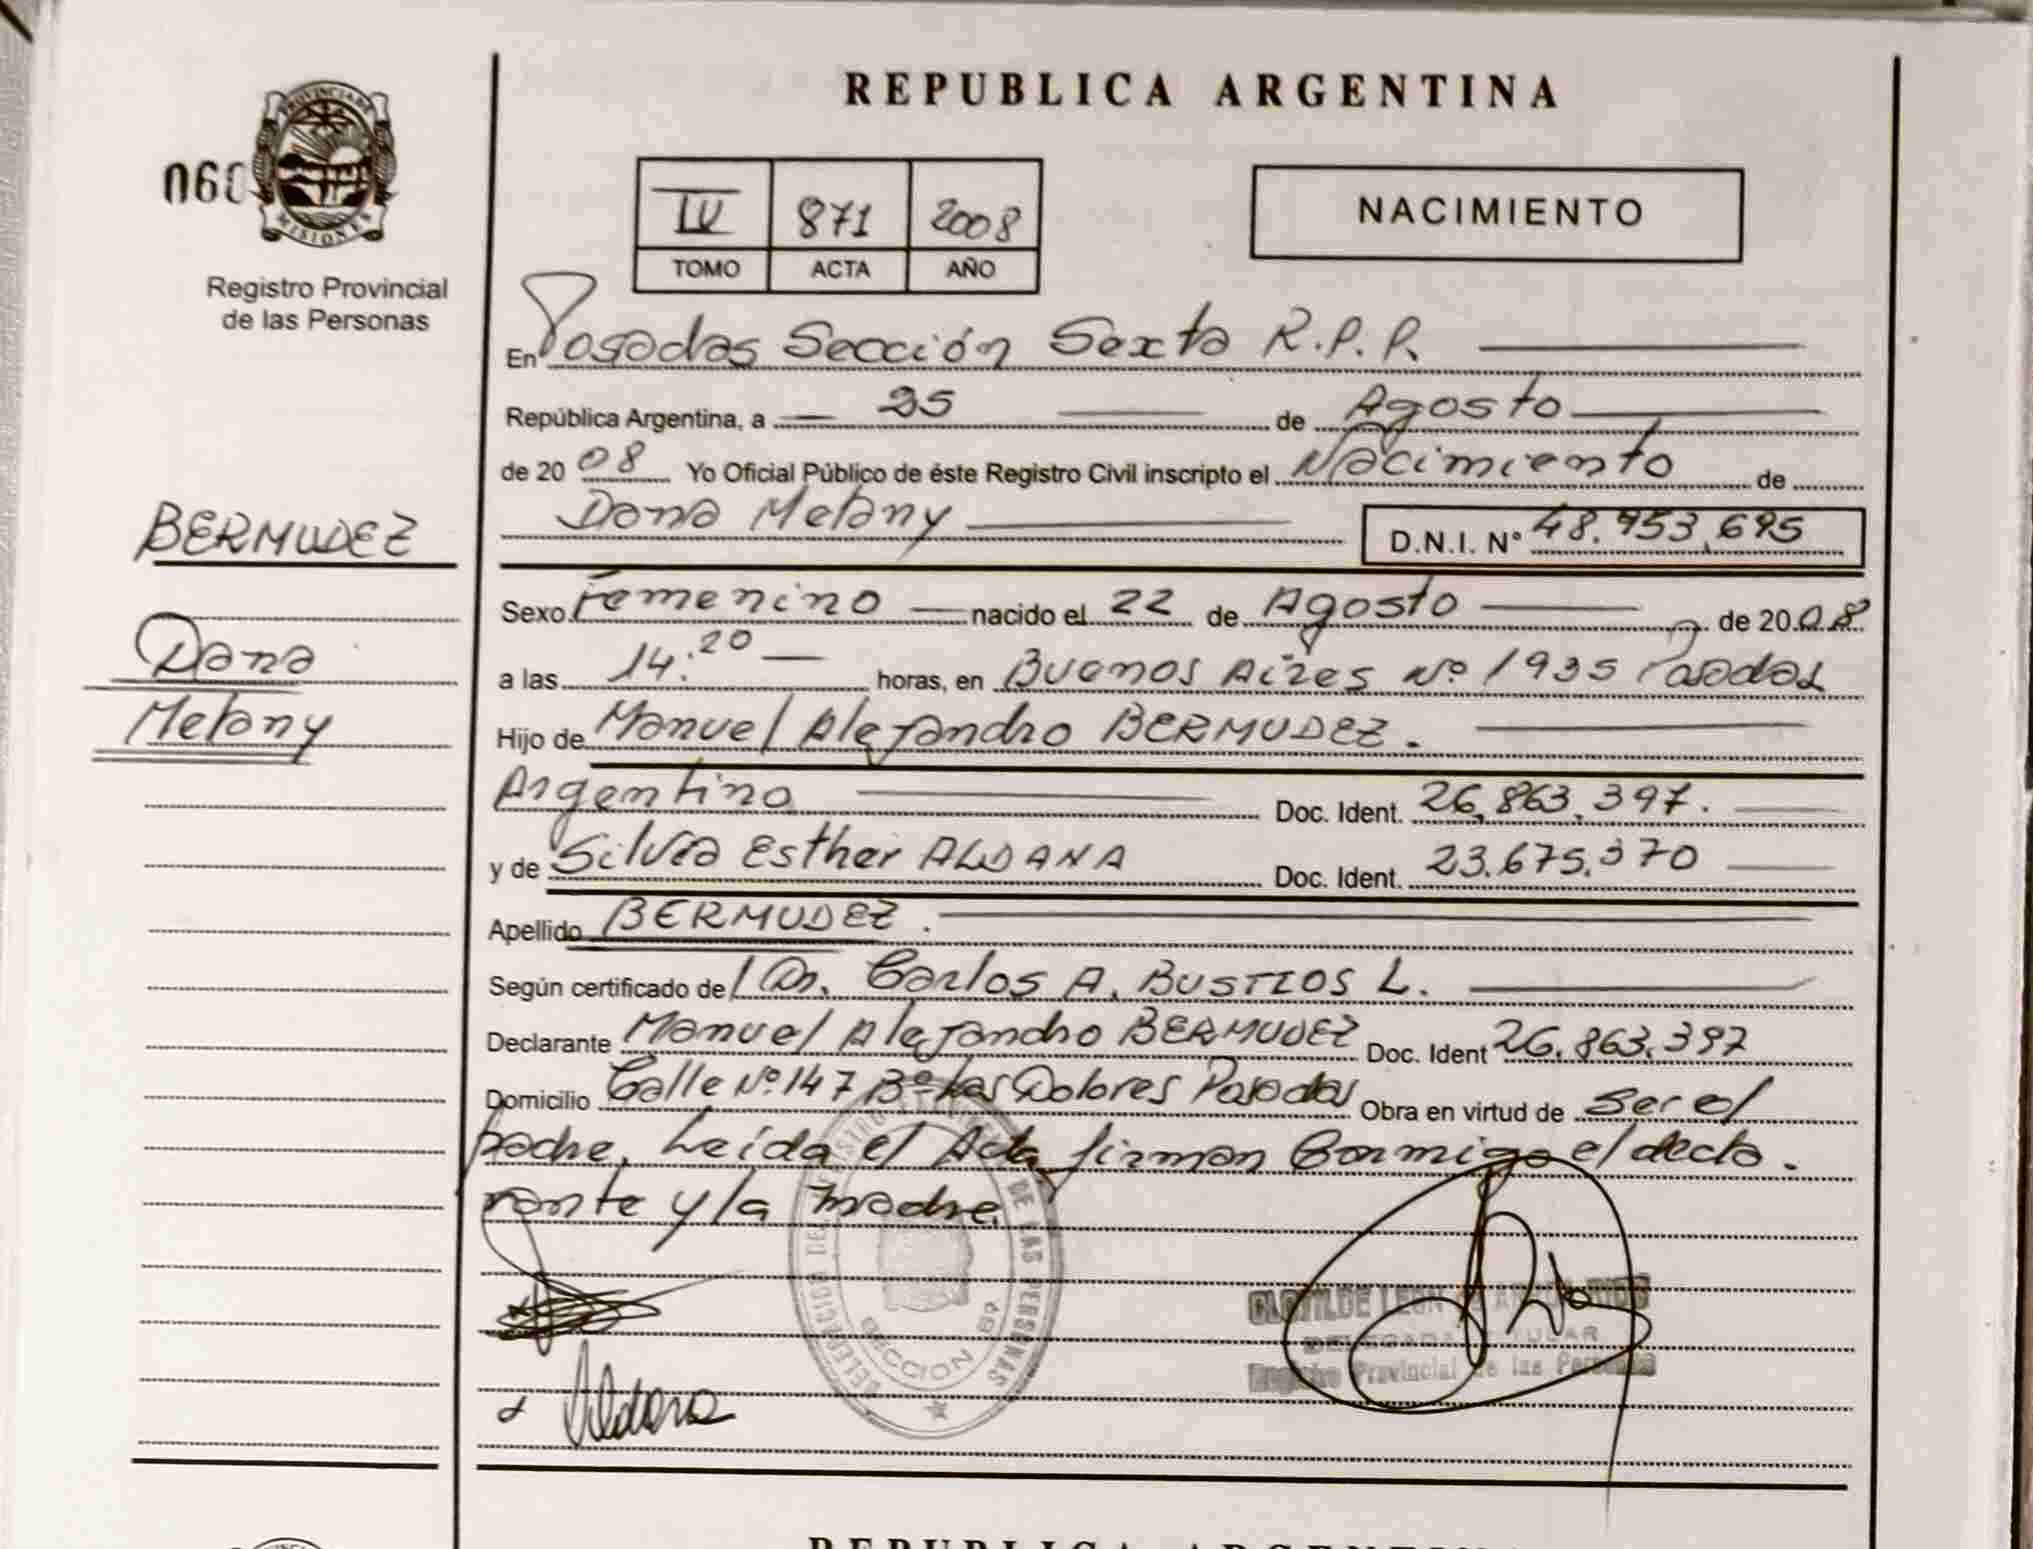 REPUBLICA ARGENTINA
060
PROVINCIA DE
MISIONES
Registro Provincial
de las Personas
IV 871 2008
TOMO ACTA AÑO
NACIMIENTO
En Posadas Sección Sexta R.P.P.
República Argentina, a 25 de Agosto
de 2008 Yo Oficial Público de éste Registro Civil inscripto el Nacimiento de
Dana Melany D.N.I. Nº 48.953.695
BERMUDEZ
Dana
Melany
Sexo Femenino nacido el 22 de Agosto de 2008
a las 14:20 horas, en Buenos Aires Nº 1935 Posadas
Hijo de Manuel Alejandro BERMUDEZ.
Argentino Doc. Ident. 26.863.397.
y de Silvia Esther ALDANA Doc. Ident. 23.675.370
Apellido BERMUDEZ.
Según certificado del Dr. Carlos A. BUSTIOS L.
Declarante Manuel Alejandro BERMUDEZ Doc. Ident 26.863.397
Domicilio Calle Nº 147 Bº Los Dolores Posadas Obra en virtud de ser el
padre. Leída el Acta, firman Conmigo el decla.
rante y la madre.
DE LAS PERSONAS
SECCION
Aldana
CLOTILDE LEON DE
DELEGADA TITULAR
Registro Provincial de las Personas
REPUBLICA ARGENTINA